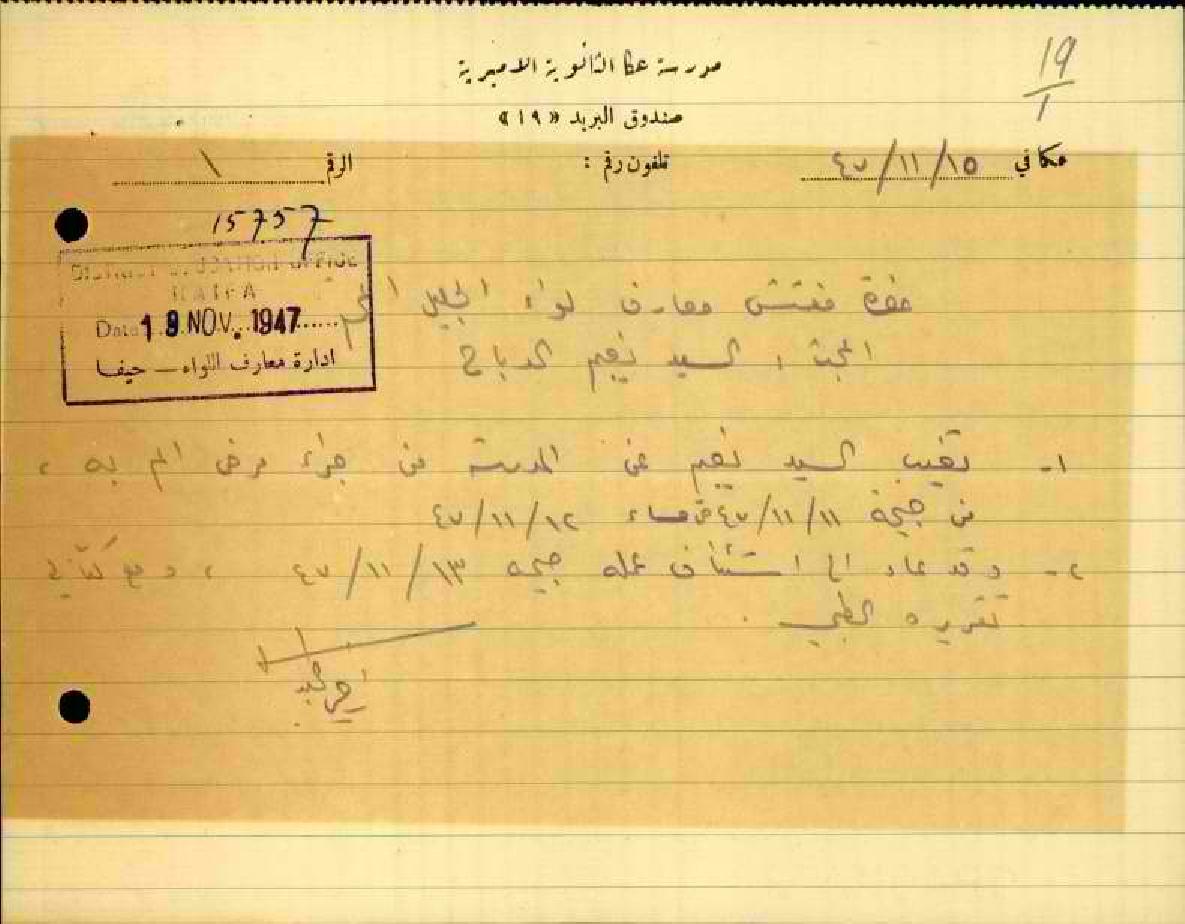 مدرسة عكا الثانوية الاميرية
19
1
صندوق البريد «١٩»
عكا في ٤٧/١١/١٥
تلفون رقم :
الرقم ١
15757
DISTRICT EDUCATION OFFICE
HAIFA
Date 19 NOV. 1947
ادارة معارف اللواء — حيفا
حضرة مفتش معارف لواء الجليل المحترم
السيد نعيم الدباغ
١- تغيب السيد نعيم عن المدرسة من جراء مرض الم به ،
من صبيحة ٤٧/١١/١١ حتى مساء ٤٧/١١/١٢
٢- وقد عاد الى استئناف عمله صبيحة ٤٧/١١/١٣ ، ومع كتابي
تقريره الطبي .